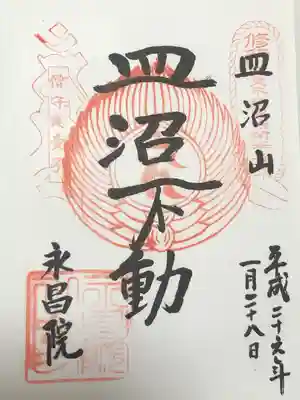 皿沼山
皿沼不動
永昌院
平成二十六年
一月二十八日